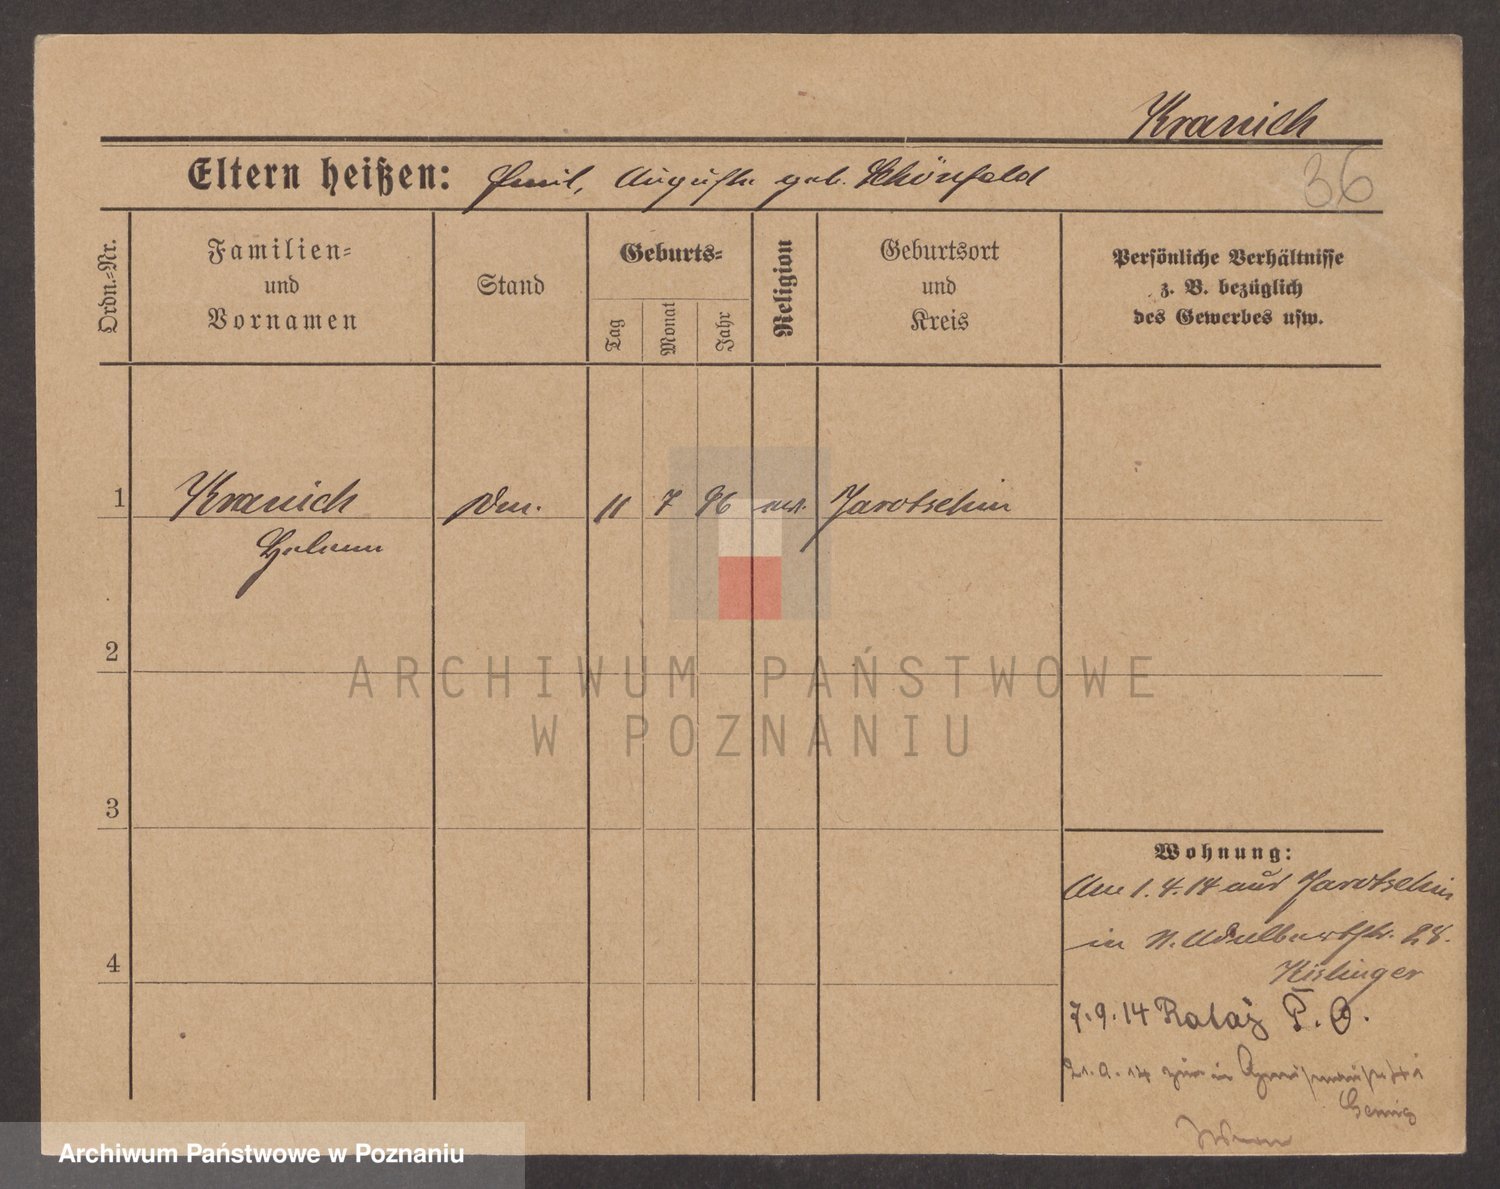 Kranich
Eltern heißen: Emil, Auguste geb. Schönfeld
36
Ordn.-Nr.
Familien-
und
Vornamen
Stand
Geburts-
Tag
Monat
Jahr
Religion
Geburtsort
und
Kreis
Persönliche Verhältnisse
z. B. bezüglich
des Gewerbes usw.
1
Kranich
11 7 96 Jarotschin
2
3
4
Wohnung:
Am 1.4.14 aus Jarotschin
in N. Adalbertstr. 28.
Kislinger
7.9.14 Rataj P.O.
ARCHIWUM PAŃSTWOWE
W POZNANIU
Archiwum Państwowe w Poznaniu